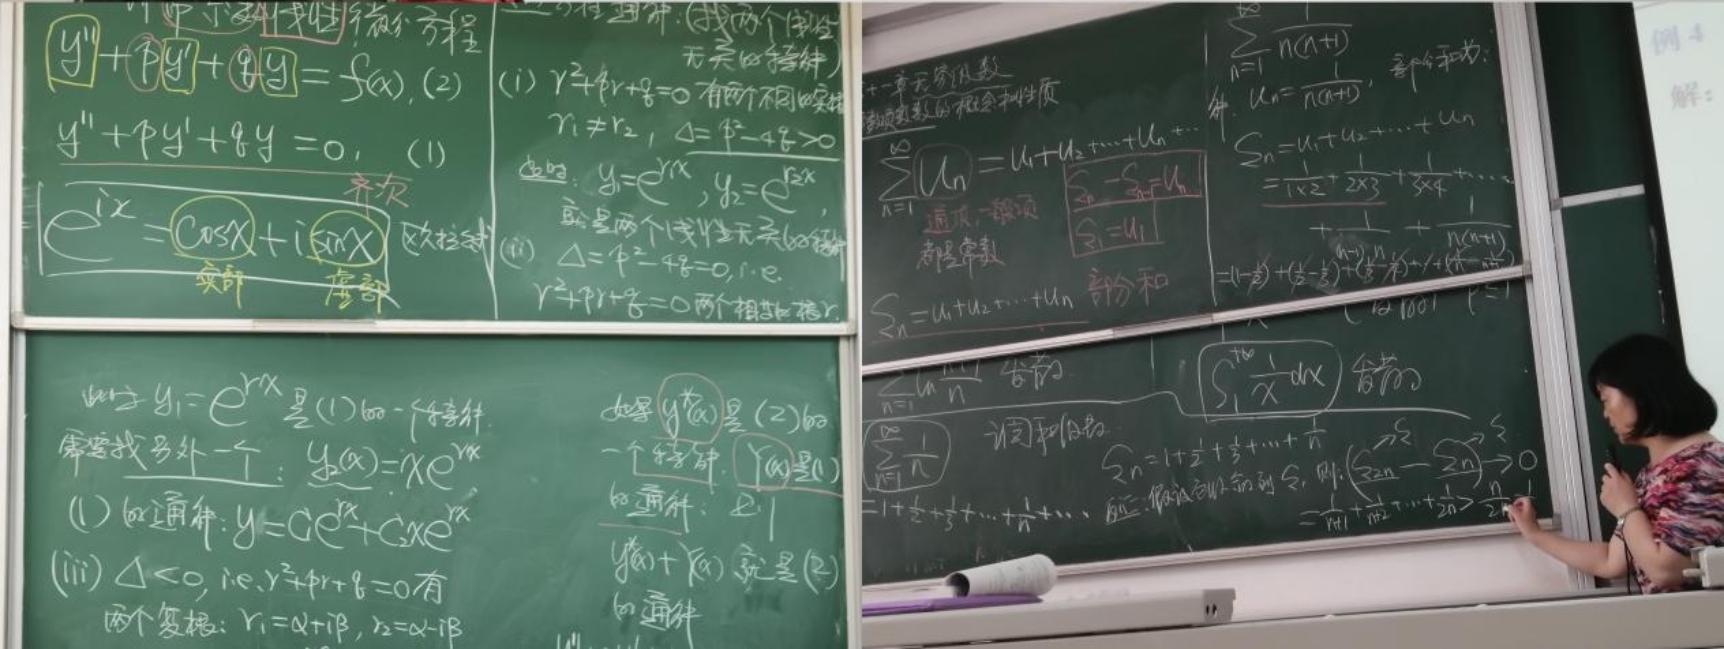 线性微分方程
y''+py'+qy=f(x), (2)
y''+py'+qy=0, (1)
齐次
e^{ix}=cosx+i sinx 欧拉公式
实部 虚部
通解:(找两个线性
无关的特解)
(i) r²+pr+q=0 有两个不同的实根
r₁≠r₂, Δ=p²-4q>0
此时: y₁=e^{r₁x}, y₂=e^{r₂x},
就是两个线性无关的特解
(ii) Δ=p²-4q=0, i.e.
r²+pr+q=0 两个相等的根r.
此时 y₁=e^{rx} 是(1)的一个特解.
需要找另外一个: y₂(x)=xe^{rx}
(1)的通解: y=C₁e^{rx}+C₂xe^{rx}
(iii) Δ<0, i.e. r²+pr+q=0 有
两个复根: r₁=α+iβ, r₂=α-iβ
如果 y*(x) 是(2)的
一个特解, Y(x)是(1)
的通解:
y*(x)+Y(x) 就是(2)
的通解
十一章无穷级数
常数项级数的概念和性质
∑_{n=1}^{∞} Uₙ = u₁+u₂+…+uₙ+…
通项, 一般项
都是常数
Sₙ-Sₙ₋₁=Uₙ
S₁=U₁
Sₙ=u₁+u₂+…+uₙ 部分和
∑_{n=1}^{∞} 1/(n(n+1))
解: uₙ=1/(n(n+1)), 部分和为:
Sₙ=u₁+u₂+…+uₙ
=1/(1×2)+1/(2×3)+1/(3×4)+…
+1/((n-1)n)+1/(n(n+1))
=(1-1/2)+(1/2-1/3)+(1/3-1/4)+…+(1/n-1/(n+1))
∑_{n=1}^{∞} ln (n+1)/n 发散
∫₁^{+∞} 1/x dx 发散
∑_{n=1}^{∞} 1/n
=1+1/2+1/3+…+1/n+…
Sₙ=1+1/2+1/3+…+1/n
反证:假设它收敛到S, 则: (S₂ₙ-Sₙ)→0
=1/(n+1)+1/(n+2)+…+1/2n>n/2n
例 4
解: